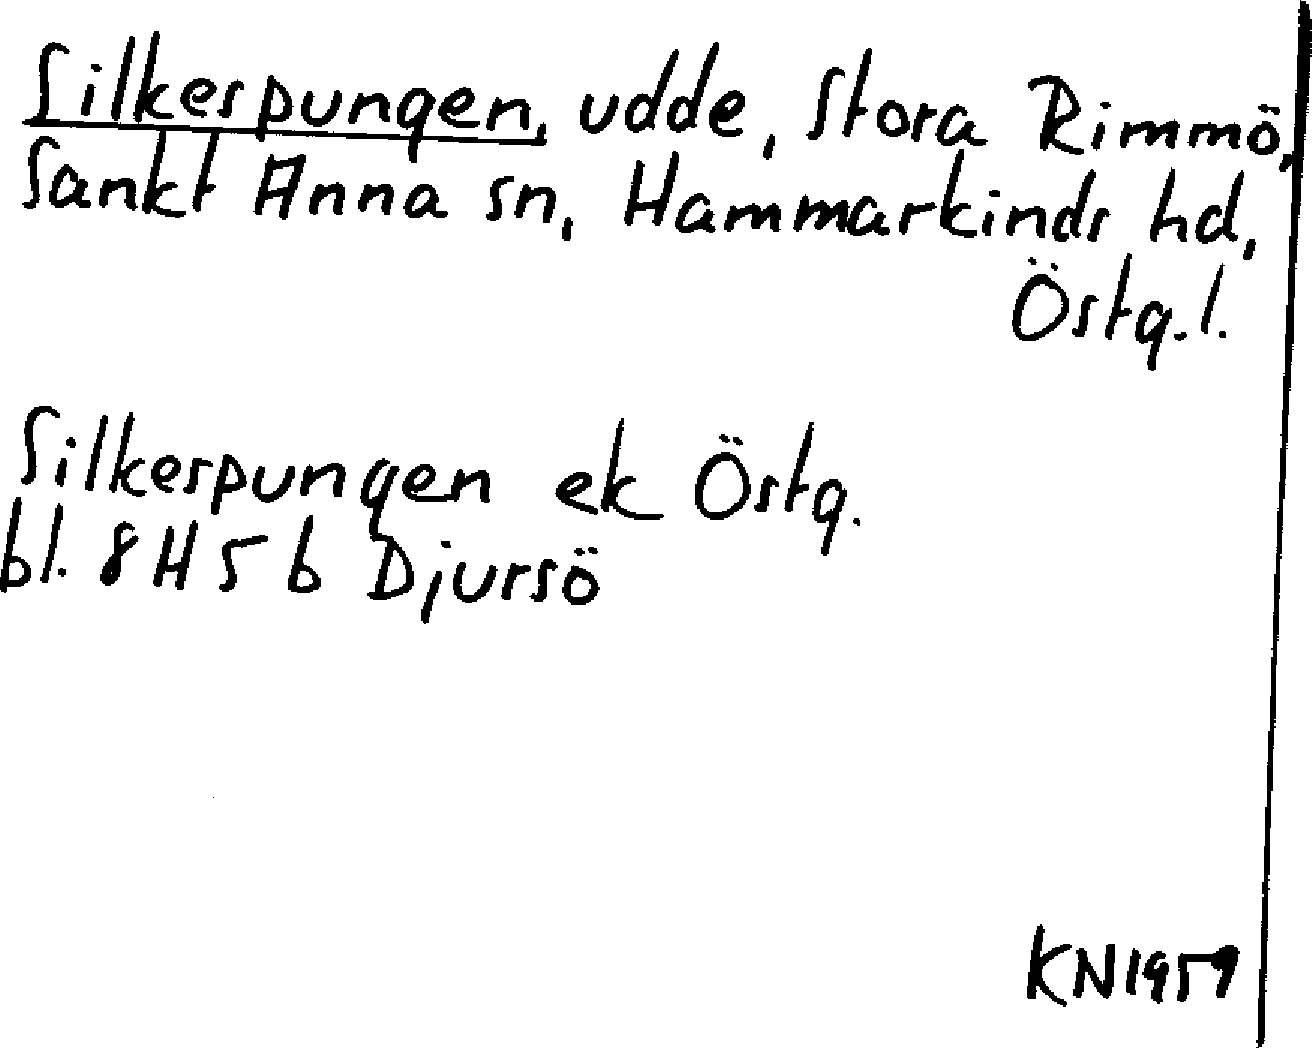 Silkespungen, udde, Stora Rimmö,
Sankt Anna sn, Hammarkinds hd,
Östg. l.
Silkespungen ek Östg.
bl. 8 H 5 b Djursö
KN 1959